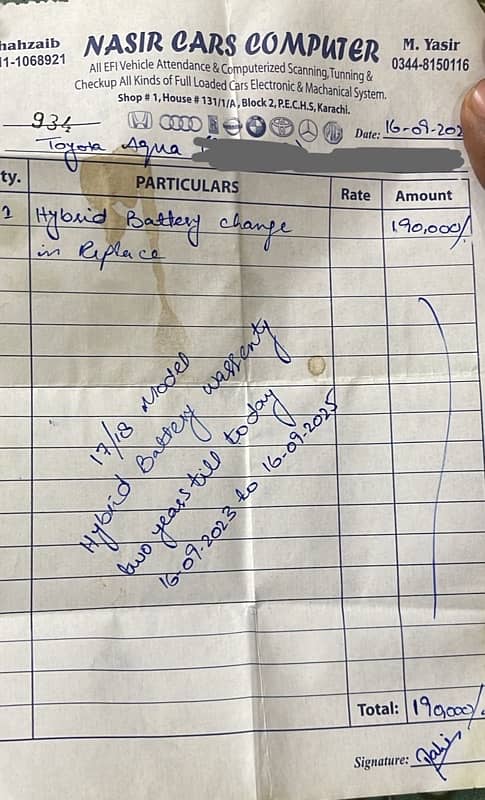 hahzaib
11-1068921
NASIR CARS COMPUTER
M. Yasir
0344-8150116
All EFI Vehicle Attendance & Computerized Scanning, Tunning &
Checkup All Kinds of Full Loaded Cars Electronic & Machanical System.
Shop # 1, House # 131/1/A, Block 2, P.E.C.H.S, Karachi.
934
Date: 16-09-202
Toyota Aqua
ty. PARTICULARS Rate Amount
1 Hybrid Battery change 190,000/
in Replace
17/18 Model
Hybrid Battery warrenty
two years till today
16-09-2023 to 16-09-2025
Total: 190,000/
Signature: